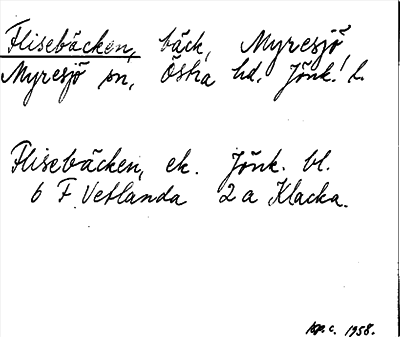 Flisebäcken, bäck, Myresjö
Myresjö sn, Östra hd. Jönk. l.
Flisebäcken, ek. Jönk. bl.
6 F Vetlanda 2 a Klacka.
1958.